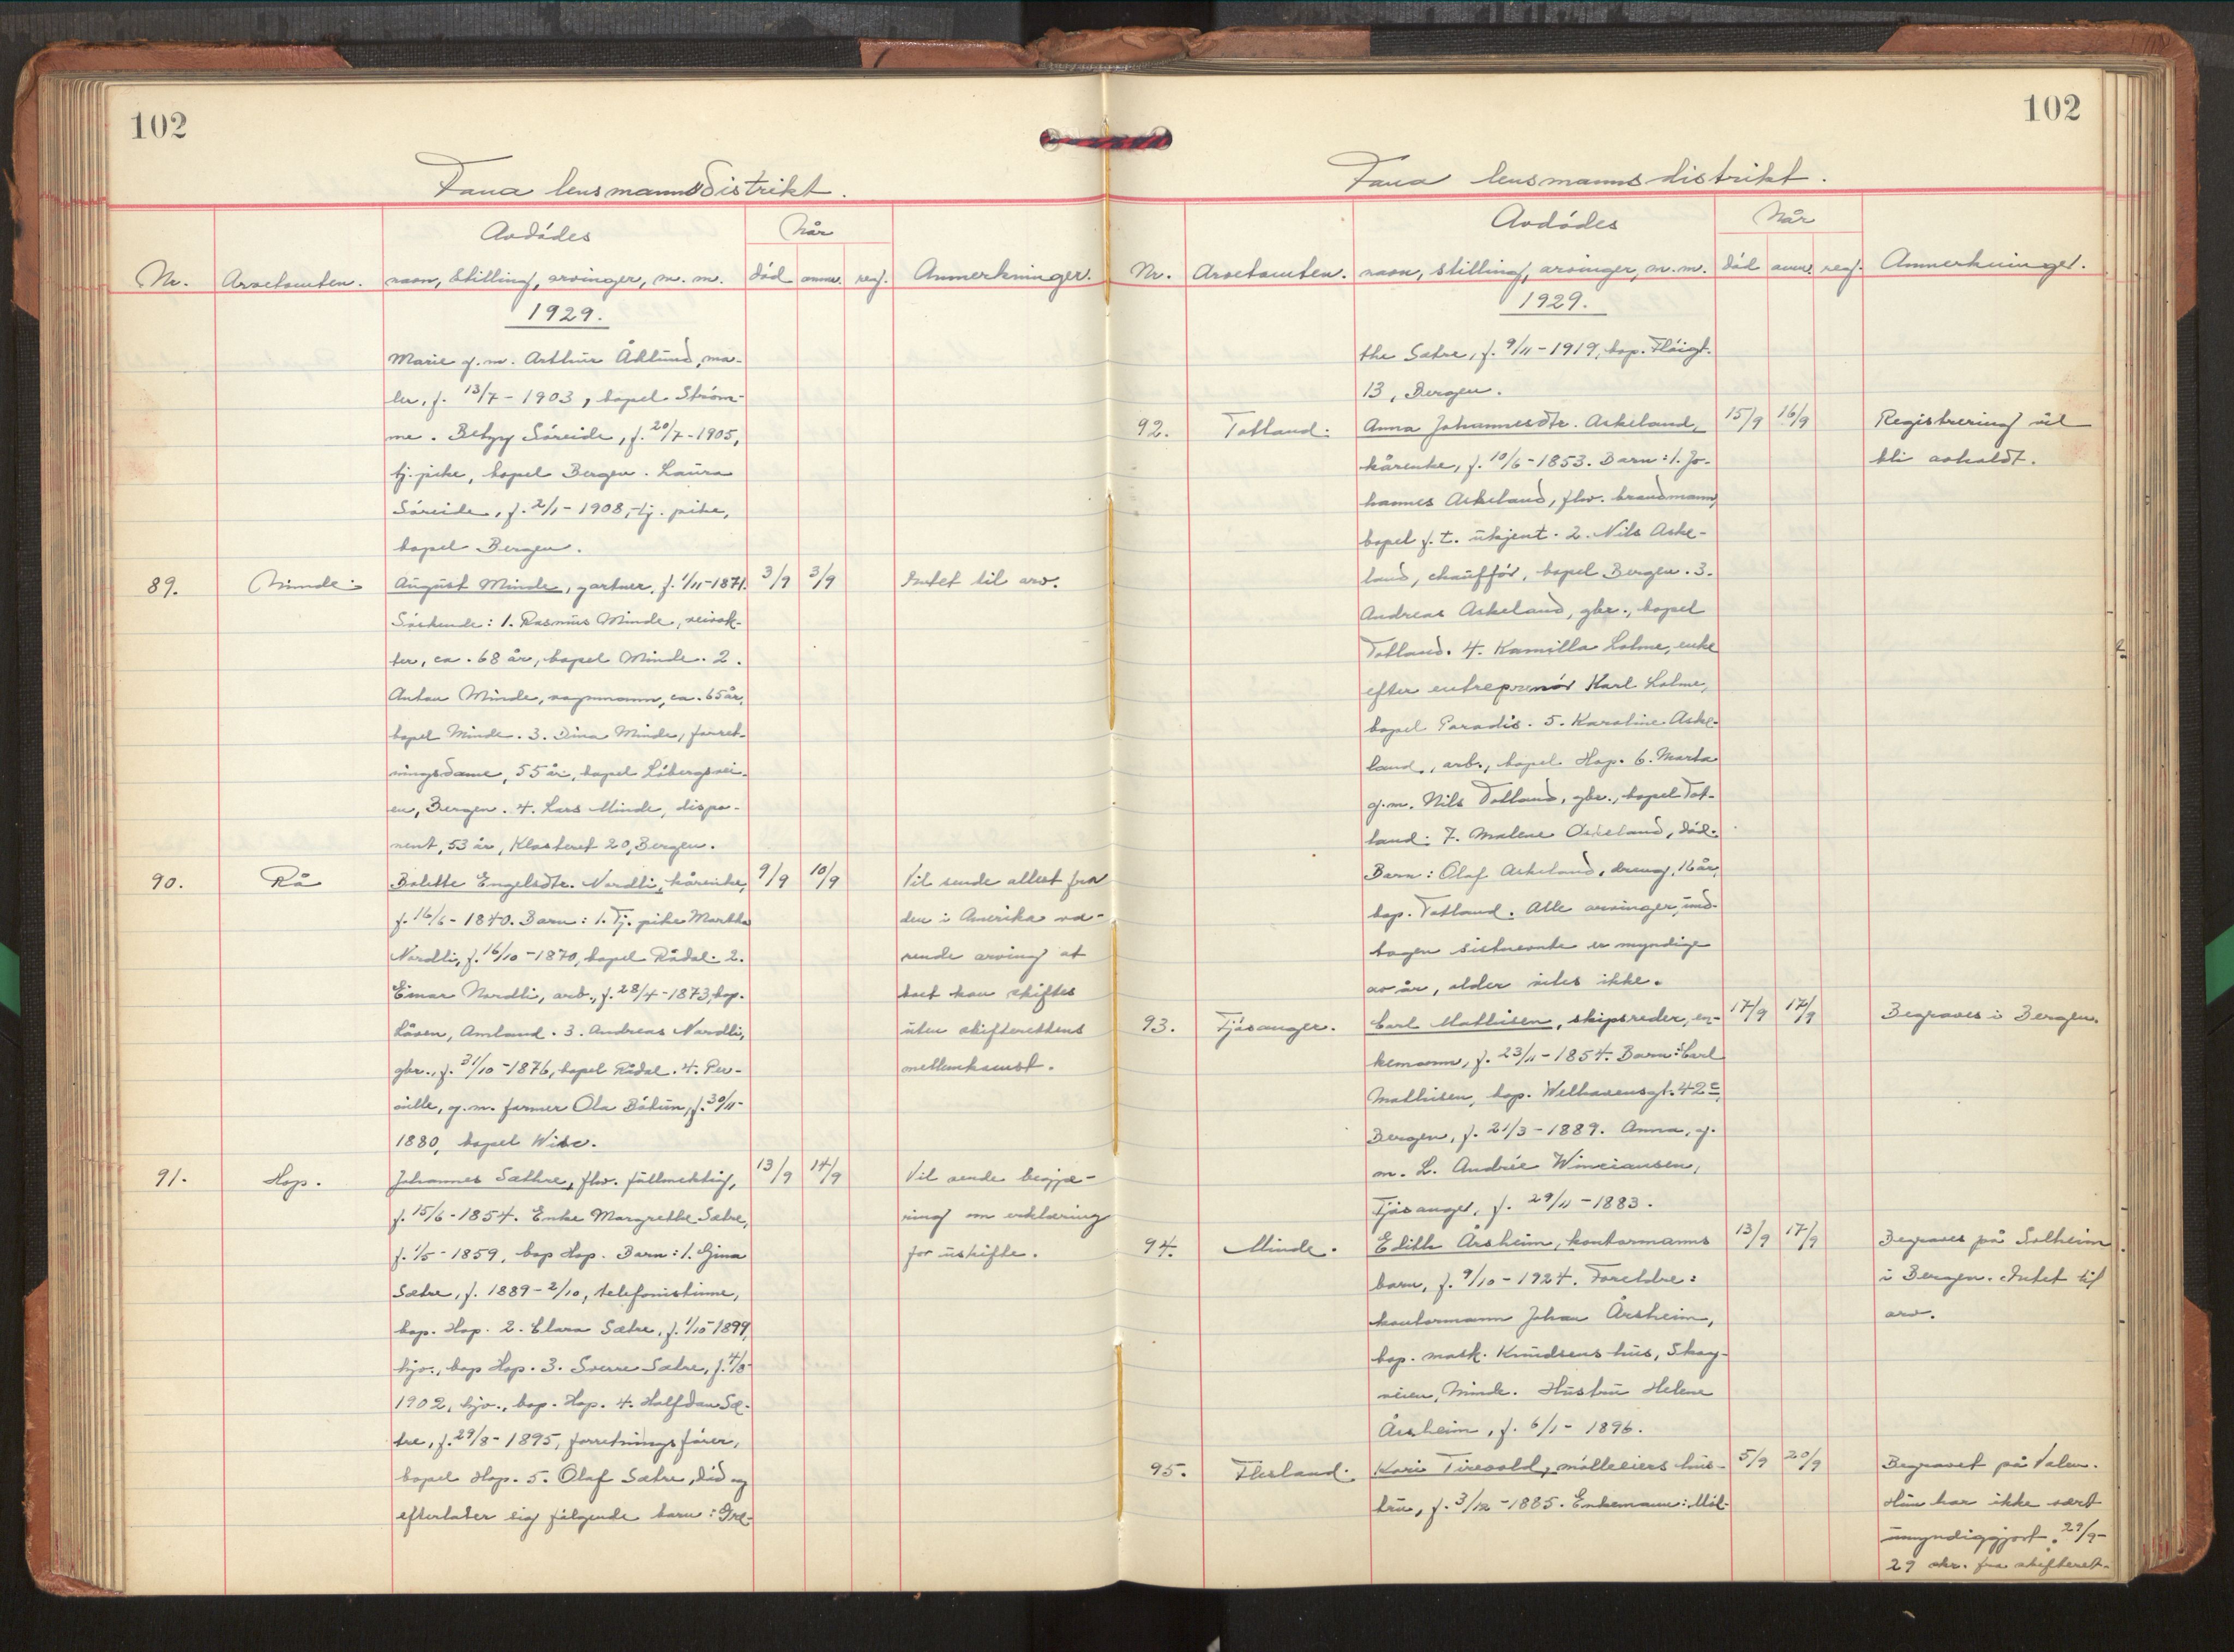 102
Fana lensmannsdistrikt.
Avdødes
Når
Nr. Arvetomten. navn, stilling, arvinger, m. m. død anm. reg. Anmerkninger.
1929.
Marie g. m. Arthur Åklund, ma-
ler, f. 13/7 - 1903, bopel Strøm-
me. Betzy Søreide, f. 20/7 - 1905,
tj. pike, bopel Bergen. Laura
Søreide, f. 2/1 - 1908, tj. pike,
bopel Bergen.
89. Minde: August Minde, gartner, f. 1/11-1871. 3/9 3/9 Intet til arv.
Søskende: 1. Rasmus Minde, veivok-
ter, ca. 68 år, bopel Minde. 2.
Anton Minde, vognmann, ca. 65 år,
bopel Minde. 3. Dina Minde, forret-
ningsdame, 55 år, bopel Løbergsvei-
en, Bergen. 4. Lars Minde, dispo-
nent, 53 år, Klosteret 20, Bergen.
90. Rå Bolette Engelsdtr. Nordli, kårenke, 9/9 10/9 Vil sende attest fra
f. 16/6 - 1840. Barn: 1. Tj. pike Martha den i Amerika væ-
Nordli, f. 16/10 - 1870, bopel Rådal. 2. rende arving at
Einar Nordli, arb., f. 28/4 - 1873, bop. boet kan skiftes
Råsen, Amland. 3. Andreas Nordli, uten skifterettens
gbr., f. 31/10 - 1876, bopel Rådal. 4. Per- mellemkomst.
nille, g. m. farmer Ola Bøtun, f. 30/11 -
1880, bopel Wisc.
91. Hop. Johannes Sæthre, fhv. fullmektig, 13/9 14/9 Vil sende begjæ-
f. 15/6 - 1854. Enke Margrethe Sætre, ring om erklæring
f. 1/5 - 1859, bop Hop. Barn: 1. Gina for uskifte.
Sætre, f. 1889 - 2/10, telefonistinne,
bop. Hop. 2. Clara Sætre, f. 1/10 - 1899,
hjv., bop Hop. 3. Sverre Sætre, f. 4/8 -
1902, hjv., bop. Hop. 4. Halfdan Sæ-
tre, f. 29/8 - 1895, forretningsfører,
bopel Hop. 5. Olaf Sætre, død og
efterlater sig følgende barn: Gre-
102
Fana lensmannsdistrikt.
Avdødes
Når
Nr. Arvetomten. navn, stilling, arvinger, m. m. død anm. reg. Anmerkninger.
1929.
the Sætre, f. 9/11 - 1919, bop. Fløigt.
13, Bergen.
92. Totland: Anna Johannesdtr. Askeland, 15/9 16/9 Registrering vil
kårenke, f. 10/6 - 1853. Barn: 1. Jo- bli avholdt.
hannes Askeland, fhv. brandmann,
bopel f. t. ukjent. 2. Nils Aske-
land, chauffør, bopel Bergen. 3.
Andreas Askeland, gbr., bopel
Totland. 4. Kamilla Lohne, enke
efter entreprenør Karl Lohne,
bopel Paradis. 5. Karoline Aske-
land, arb., bopel Hop. 6. Marta
g. m. Nils Totland, gbr., bopel Tot-
land. 7. Malene Askeland, død.
Barn: Olaf Askeland, dreng, 16 år,
bop. Totland. Alle arvinger und-
tagen sistnevnte er myndige
av år, alder vites ikke.
93. Fjøsanger. Carl Mathisen, skipsreder, en- 17/9 17/9 Begraves i Bergen.
kemann, f. 23/11 - 1854. Barn: Carl
Mathisen, bop. Welhavensgt. 42 c,
Bergen, f. 21/3 - 1889. Anna, g.
m. L. Andrée Winciansen,
Fjøsanger, f. 29/11 - 1883.
94. Minde. Edith Årsheim, kontormanns 13/9 17/9 Begraves på Solheim
barn, f. 9/10 - 1924. Foreldre: i Bergen. Intet til
kontormann Johan Årsheim, arv.
bop. mask. Knudsens hus, Skog-
veien, Minde. Hustru Helene
Årsheim, f. 6/1 - 1896.
95. Flesland: Kari Tirevold, mølleeiers hus- 5/9 20/9 Begravet på Valen.
tru, f. 3/12 - 1885. Enkemann: Møl- Hun har ikke vært
umyndiggjort. 29/9 -
29 skr. fra skifteret-